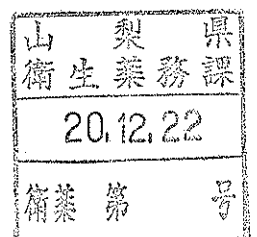 山梨県
衛生薬務課
20.12.22
衛薬第 号